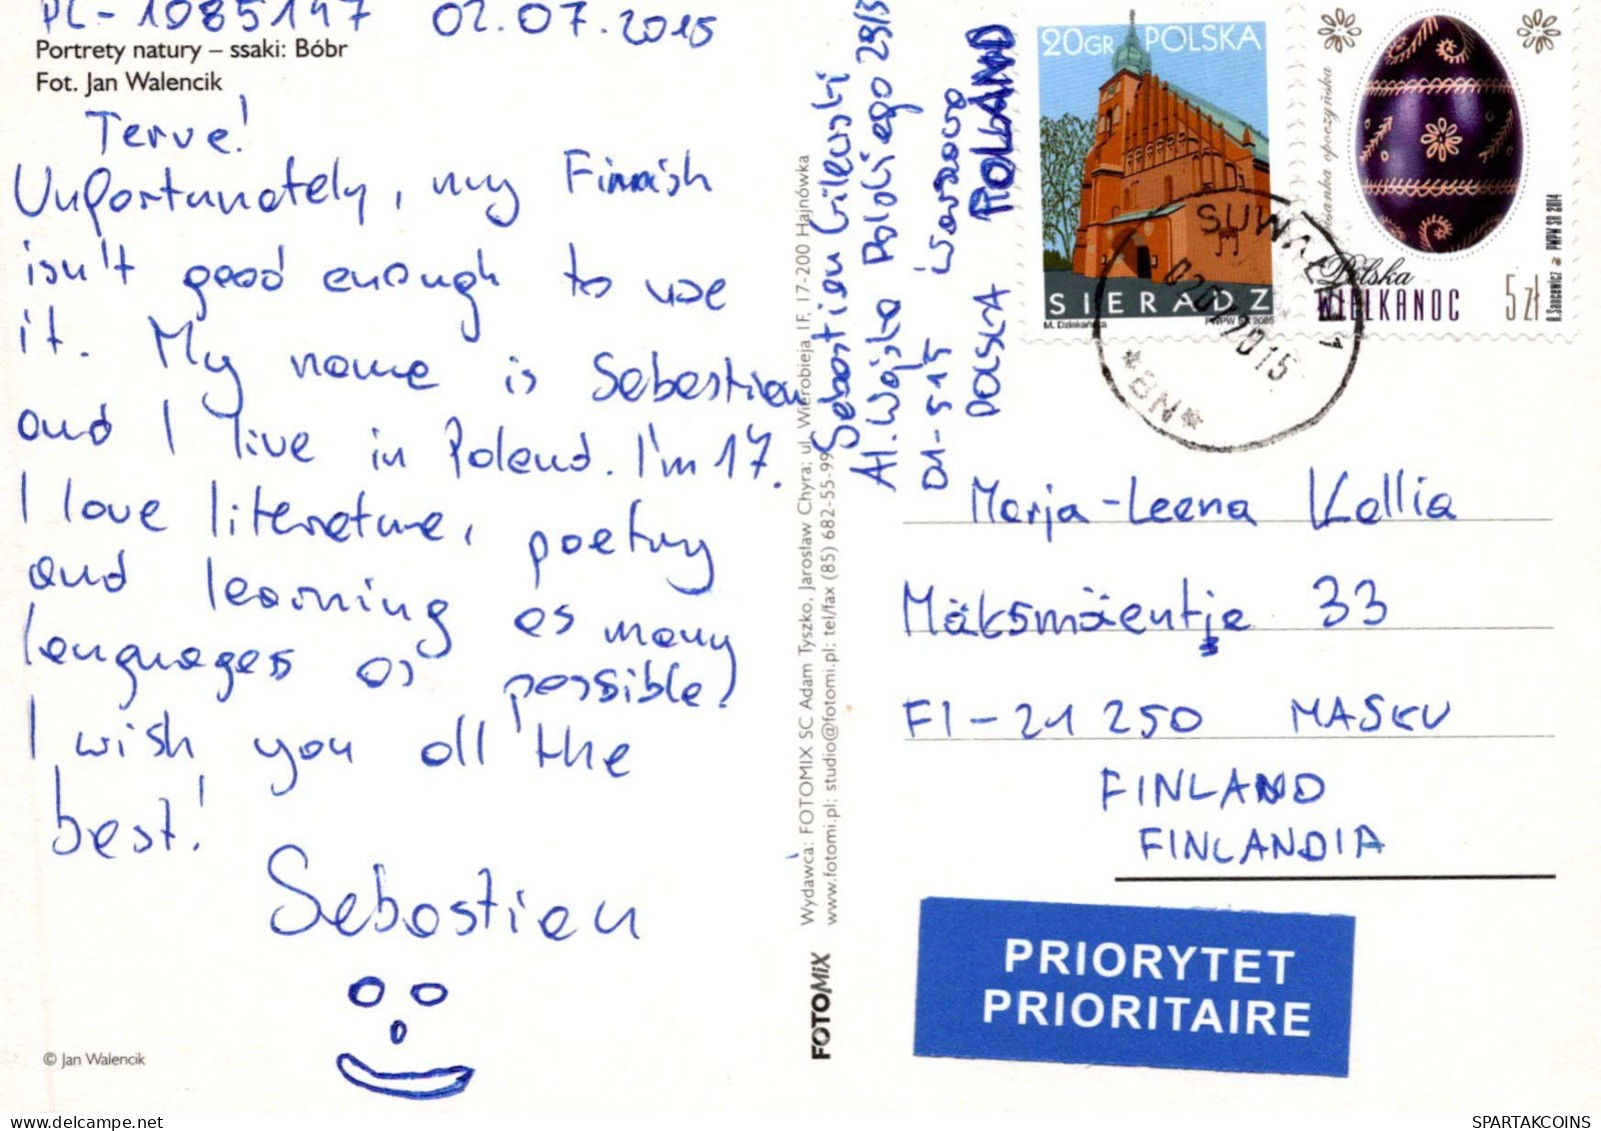 PL-1085147 02.07.2015
Portrety natury – ssaki: Bóbr
Fot. Jan Walencik
Terve!
Unfortunately, my Finnish
isn't good enough to use
it. My name is Sebastian
and I live in Poland. I'm 17.
I love literature, poetry
and learning as many
languages as possible!
I wish you all the
best!
Sebastian
© Jan Walencik
Wydawca: FOTOMIX SC Adam Tyszko, Jarosław Chyra; ul. Wierobieja 1F, 17-200 Hajnówka
www.fotomi.pl; studio@fotomi.pl; tel/fax (85) 682-55-99
FOTOMIX
Sebastian
Al. Wojska Polskiego 29/3
01-515 Warszawa
POLSKA POLAND
20GR POLSKA
SIERADZ
M. Dziekańska PWPW SA 2005
pisanka opoczyńska
Polska
WIELKANOC 5 zł
PWPW SA 2014
SUWAŁKI 1
020722015
*BN*
Marja-Leena Kallia
Mäksmäentie 33
FI-21250 MASKU
FINLAND
FINLANDIA
PRIORYTET
PRIORITAIRE
SPARTAKCOINS